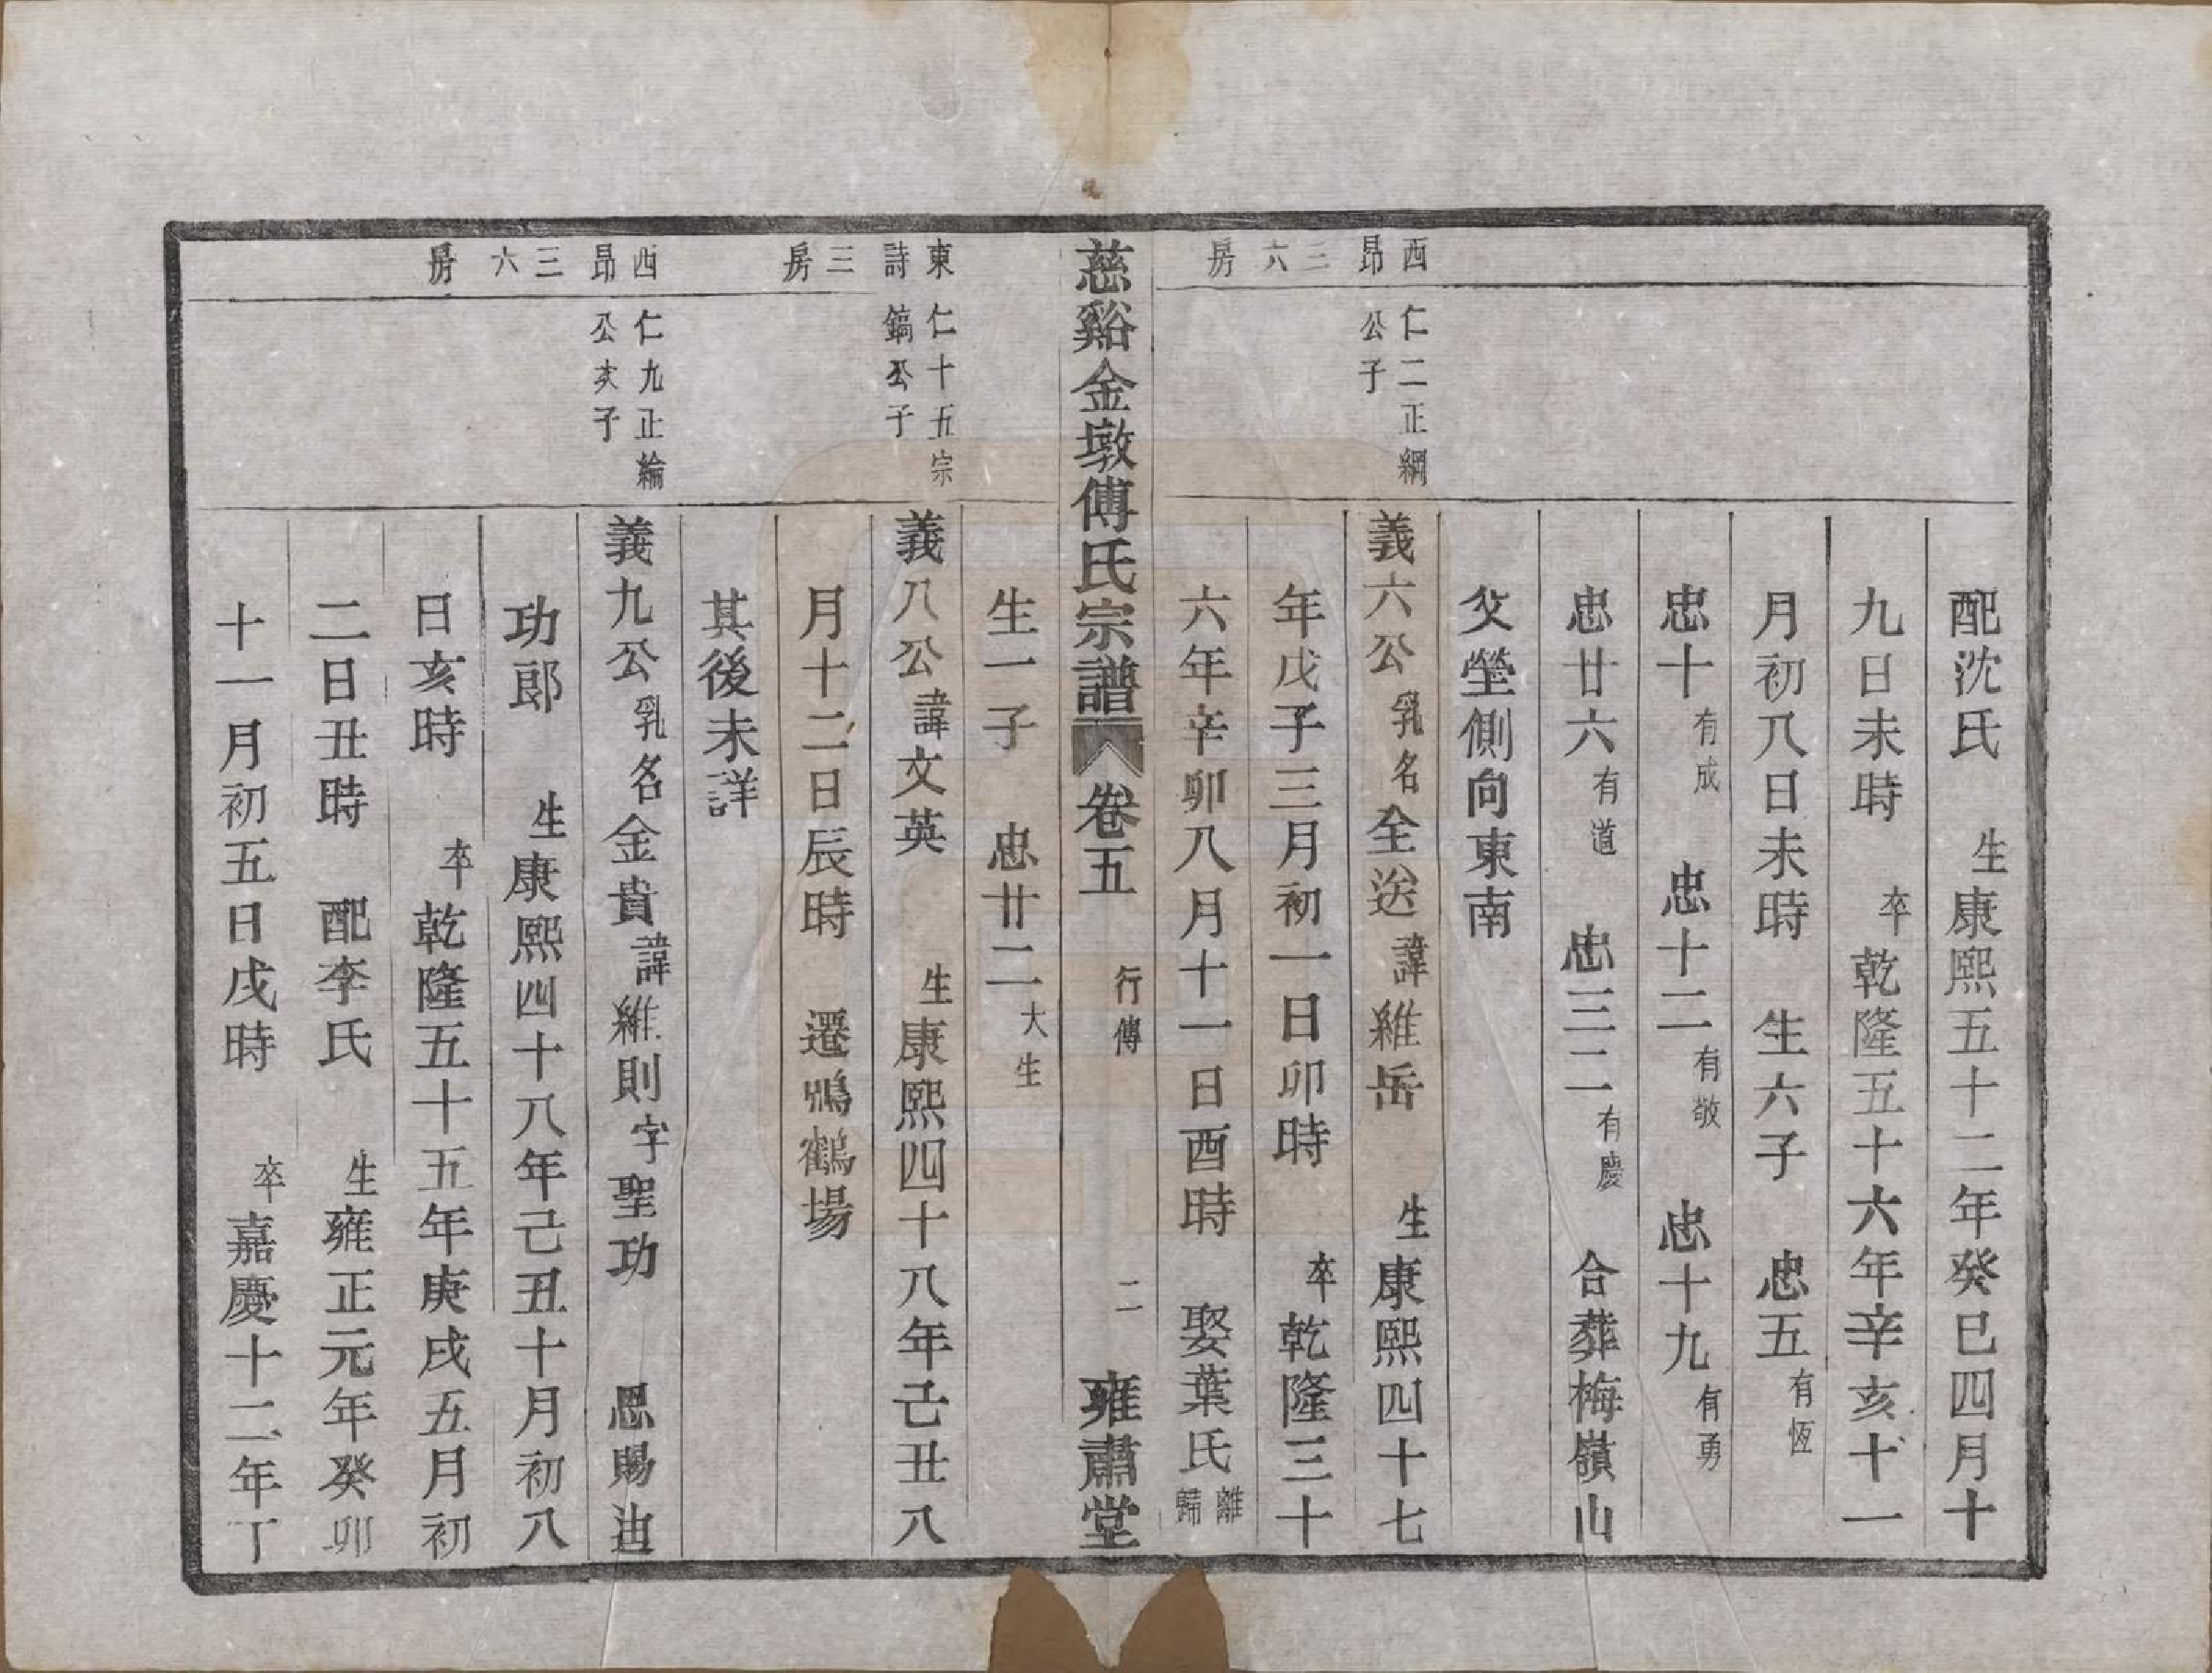 配沈氏 生康熙五十二年癸巳四月十
九日未時 卒乾隆五十六年辛亥十一
月初八日未時 生六子 忠五有恆
忠十有成 忠十二有敬 忠十九有勇
忠廿六有道 忠三二有慶 合葬梅嶺山
父塋側向東南
西昂三六房
仁二正綱公子
義六公乳名全送諱維岳 生康熙四十七
年戊子三月初一日卯時 卒乾隆三十
六年辛卯八月十一日酉時 娶葉氏離歸
慈谿金墩傅氏宗譜 卷五 行傳 二 雍肅堂
生一子 忠廿二大生
東詩三房
仁十五宗鎬公子
義八公諱文英 生康熙四十八年己丑八
月十二日辰時 遷鴨鶴場
其後未詳
西昂三六房
仁九正綸公亥子
義九公乳名金貴諱維則字聖功 恩賜迪
功郎 生康熙四十八年己丑十月初八
日亥時 卒乾隆五十五年庚戌五月初
二日丑時 配李氏 生雍正元年癸卯
十一月初五日戌時 卒嘉慶十二年丁